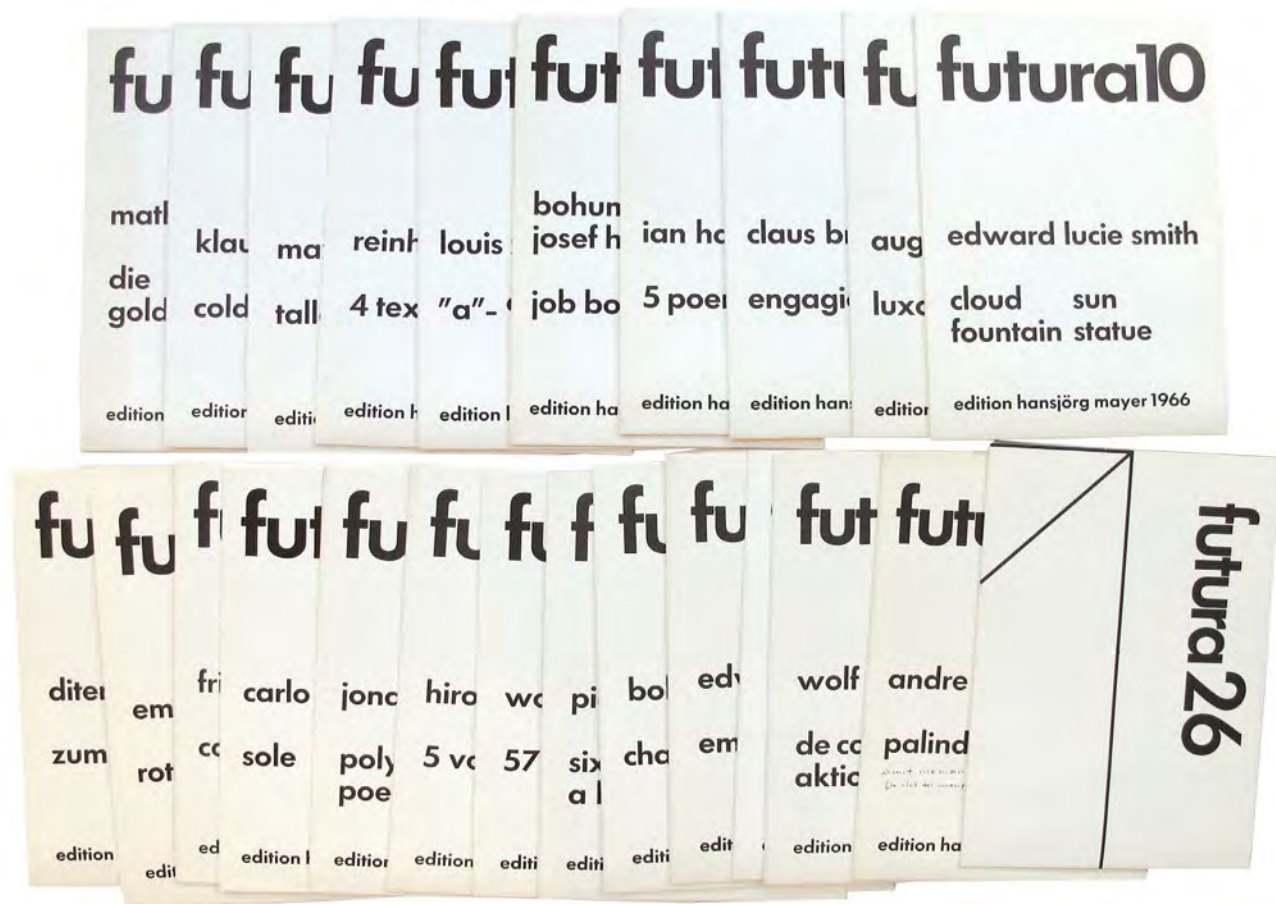 fu
matl
die
gold
edition
fu
klau
cold
edition
fu
ma
tall
editi
fu
reinh
4 tex
edition h
fut
louis
"a"-
edition
fut
bohun
josef h
job bo
edition ha
fut
ian ho
5 poe
edition ha
futu
claus b
engagi
edition han
fu
aug
luxo
edition
futura10
edward lucie smith
cloud sun
fountain statue
edition hansjörg mayer 1966
fu
diter
zum
edition
fu
em
rot
edit
f
fri
co
ed
fut
carlo
sole
edition
fu
jonc
poly
poe
edition
fu
hiro
5 vo
edition
fu
wo
57
editi
f
pi
six
a l
editi
fu
bol
cha
editi
fu
edw
em
edit
fut
wolf
de co
aktio
edition
futu
andre
palind
edition ha
futura26